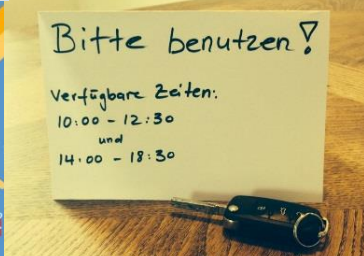 Bitte benutzen!
Verfügbare Zeiten:
10:00 - 12:30
und
14:00 - 18:30